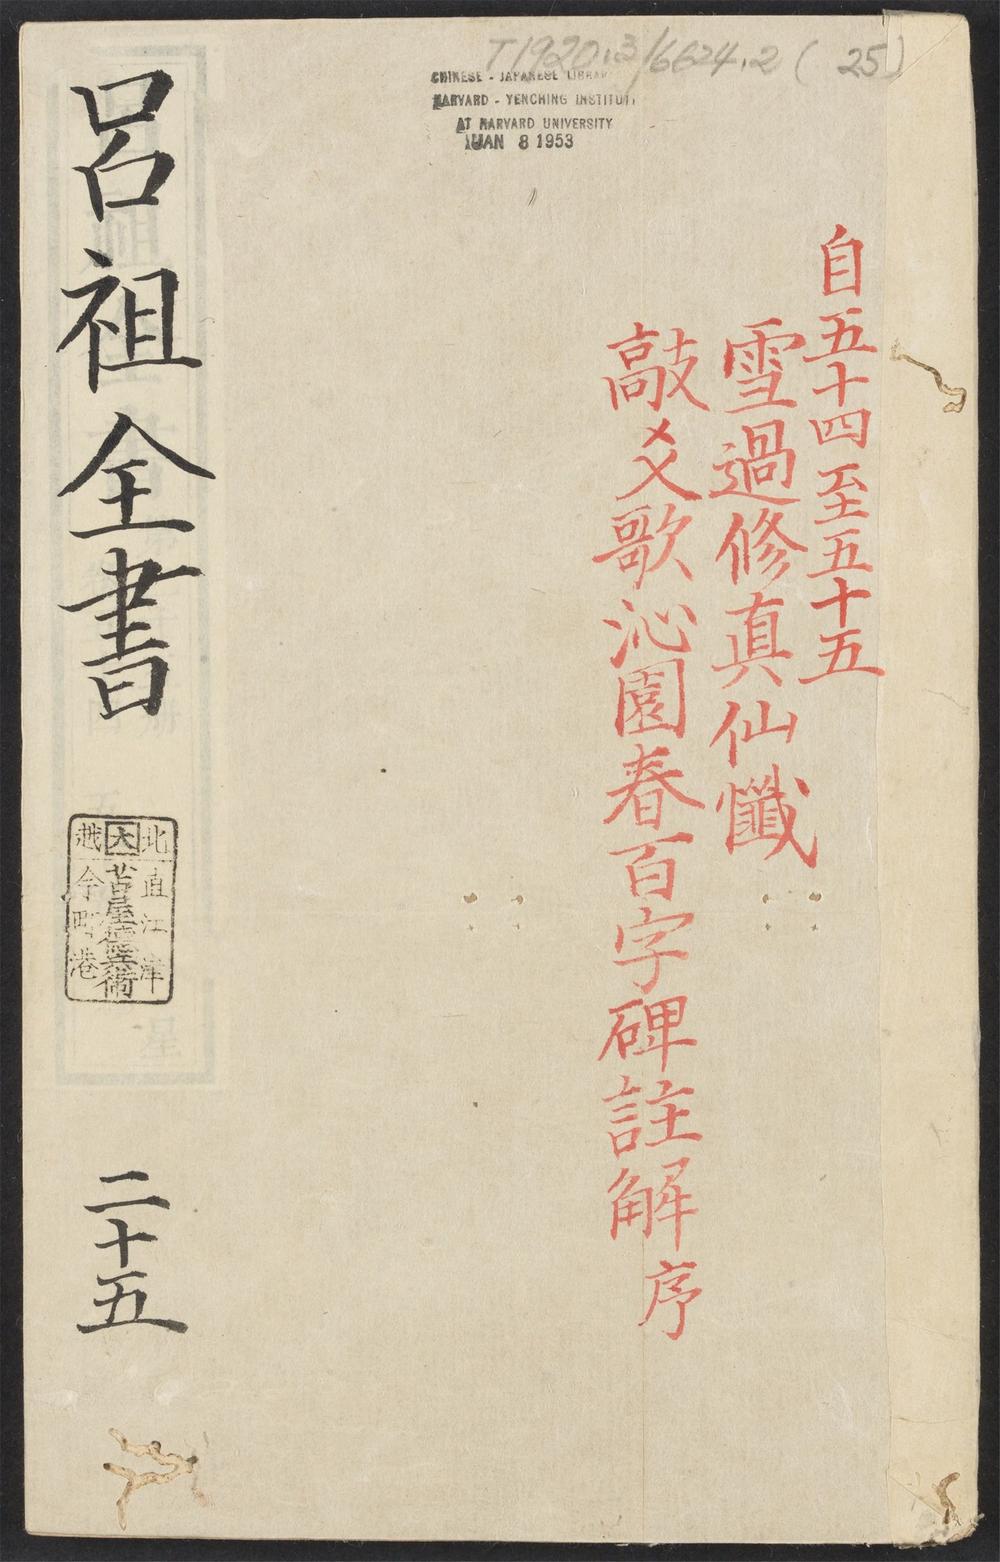 T1920.3/6624.2 (25)
CHINESE - JAPANESE LIBRARY
HARVARD - YENCHING INSTITUTE
AT HARVARD UNIVERSITY
JAN 8 1953
自五十四至五十五
雪過修真仙懺
敲爻歌沁園春百字碑註解序
呂祖全書
二十五
北直江津
大
越今町港